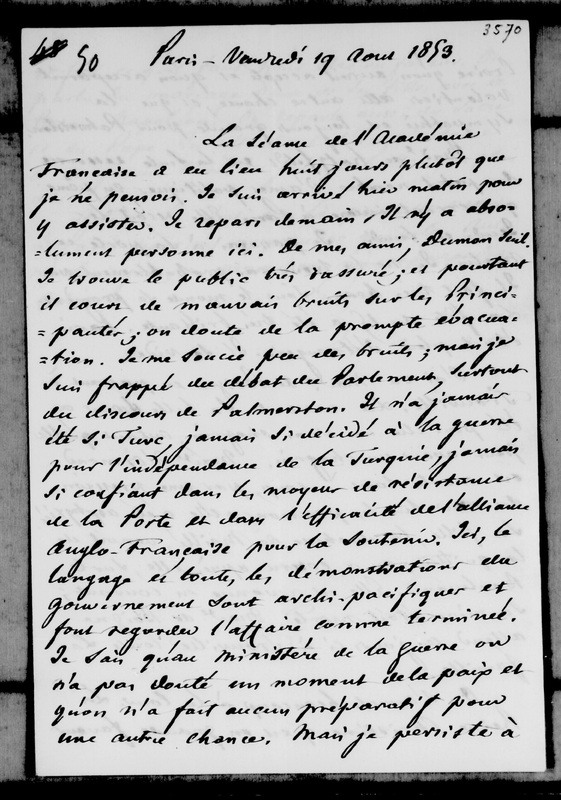 3570
48 50 Paris - Vendredi 19 Aout 1853.
La Séance de l'Académie
Française a eu lieu huit jours plutôt que
je ne pensois. Je suis arrivé hier matin pour
y assister. Je repars demain. Il n'y a abso-
=lument personne ici. De mes amis, Dumon seul.
Je trouve le public très rassuré; et pourtant
il court de mauvais bruits sur les Princi-
=pautés; on doute de la prompte évacua-
=tion. Je me soucie peu des bruits; mais je
suis frappé du débat du Parlement, surtout
du discours de Palmerston. Il n'a jamais
été si Turc, jamais si décidé à la guerre
pour l'indépendance de la Turquie, jamais
si confiant dans les moyens de résistance
de la Porte et dans l'efficacité de l'alliance
Anglo-Française pour la soutenir. Ici, le
langage et toutes les démonstrations du
gouvernement sont archi-pacifiques et
font regarder l'affaire comme terminée.
Je sais qu'au ministère de la guerre on
n'a pas douté un moment de la paix et
qu'on n'a fait aucun préparatif pour
une autre chance. Mais je persiste à